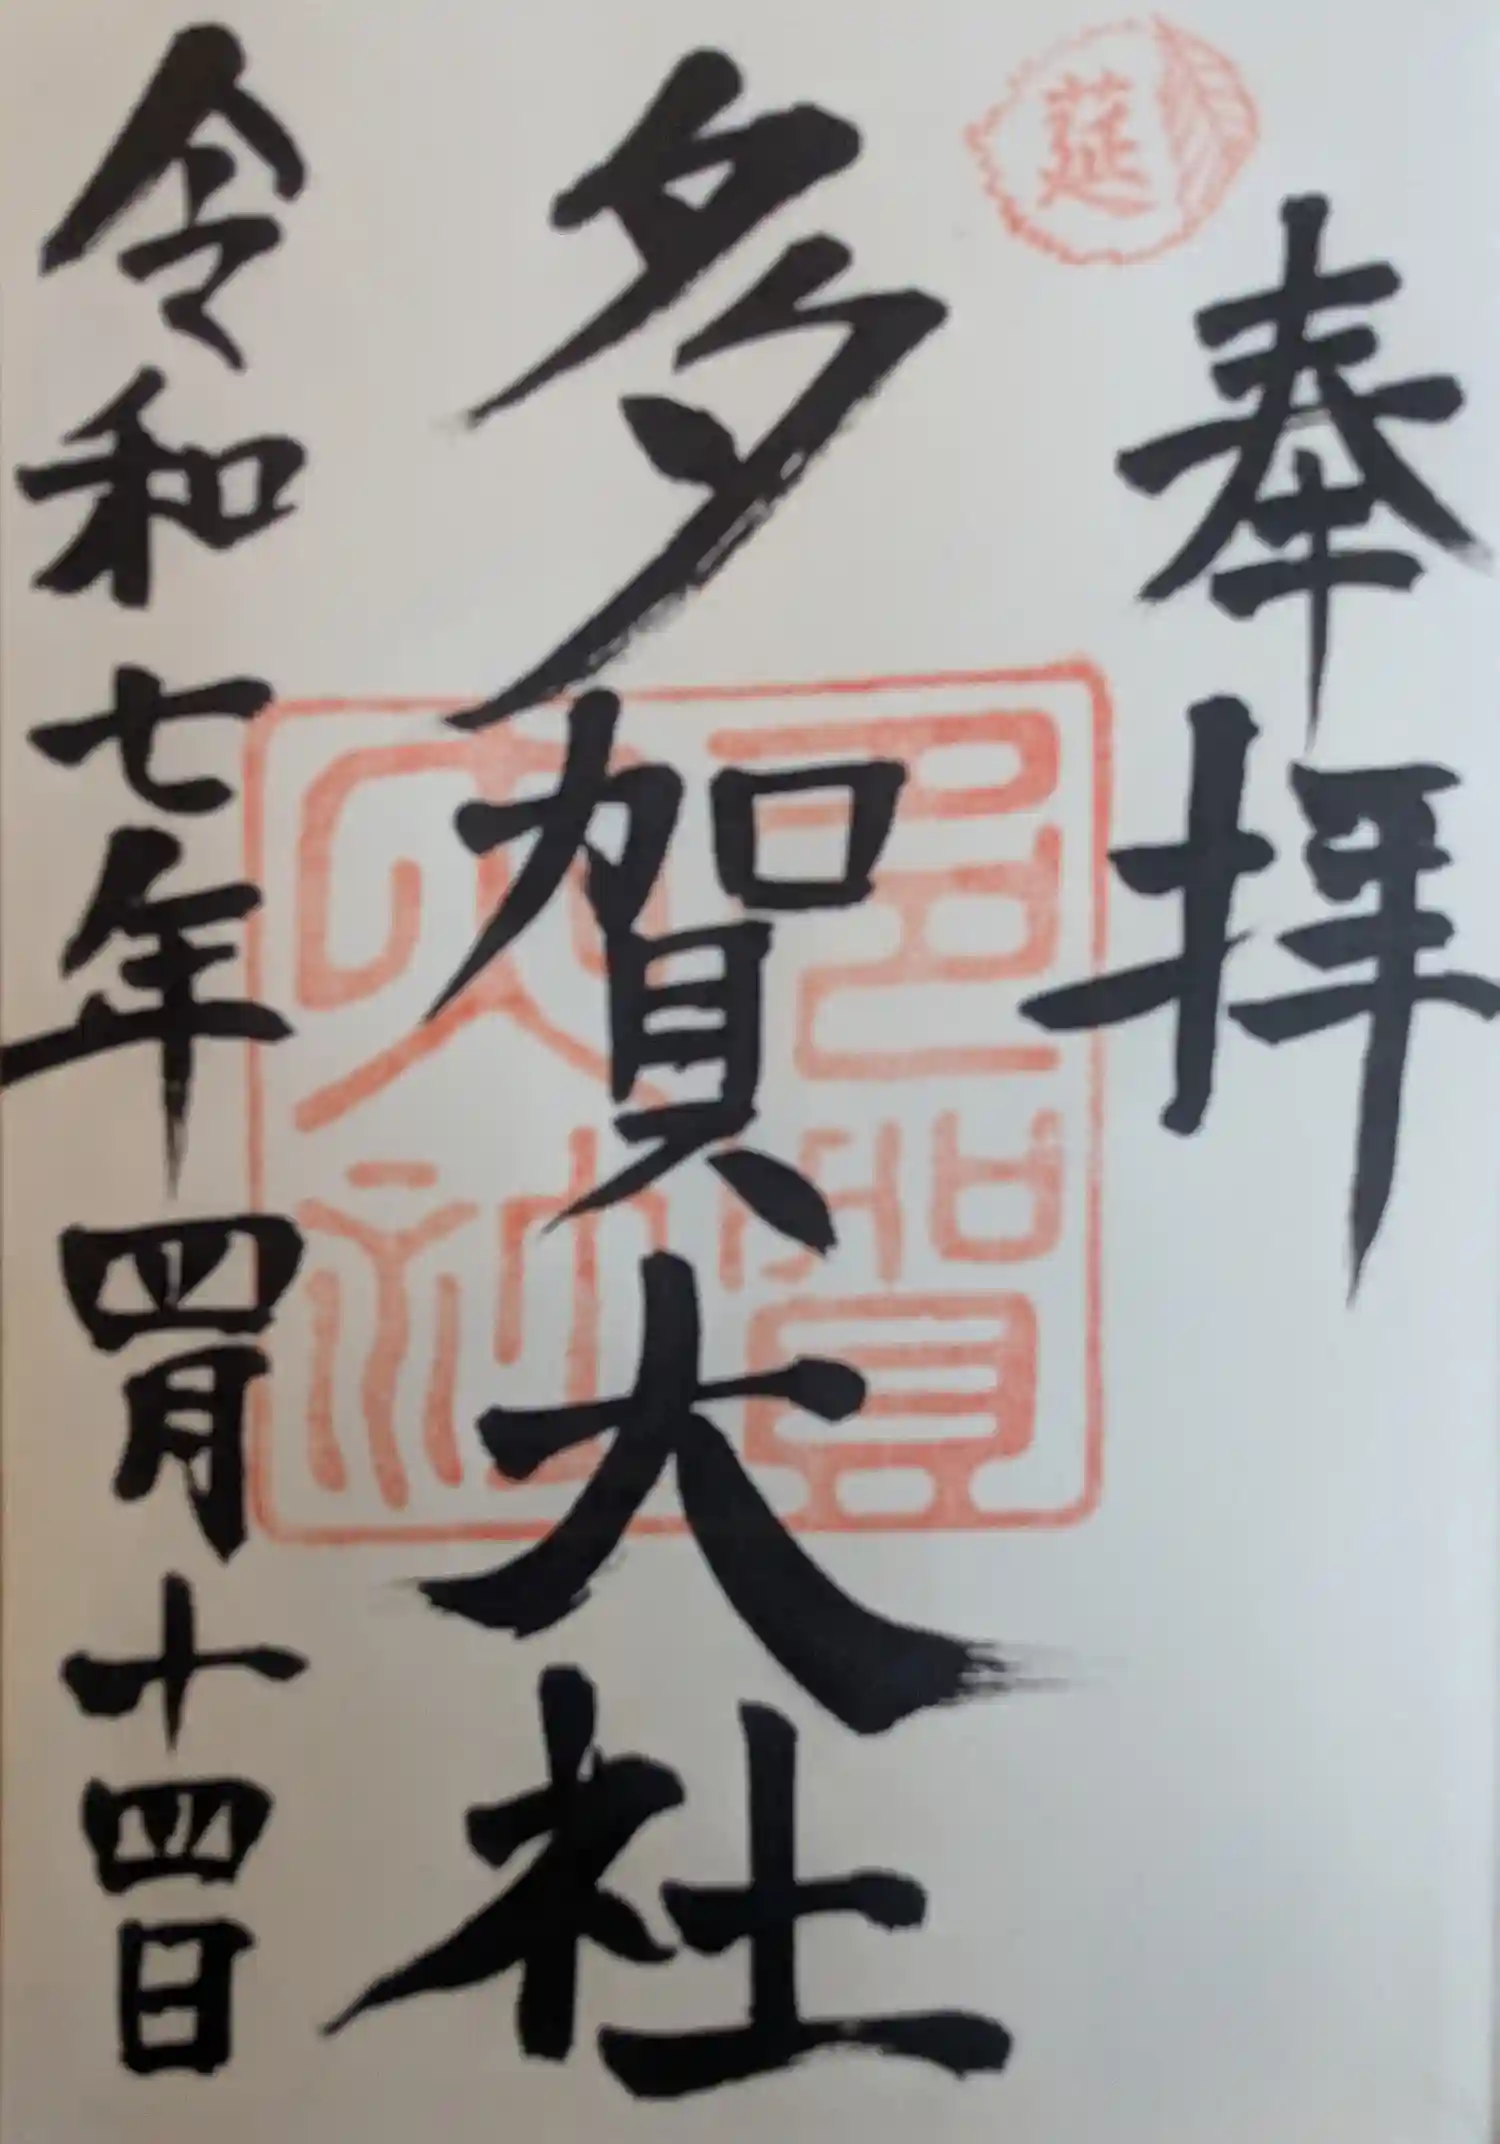 奉拝
莚
多賀大社
多賀大社
令和七年四月十四日